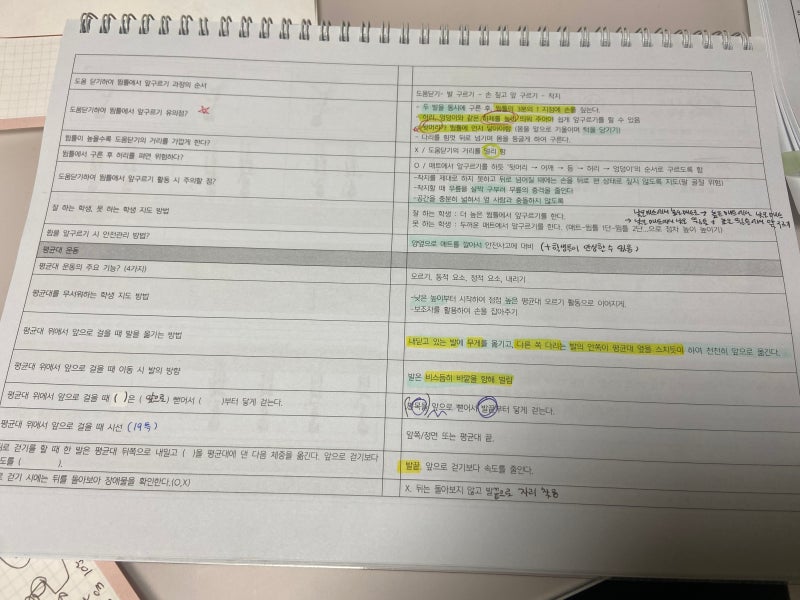 도움 닫기하여 뜀틀에서 앞구르기 과정의 순서
도움닫기- 발 구르기 - 손 짚고 앞 구르기 - 착지
도움닫기하여 뜀틀에서 앞구르기 유의점?
- 두 발을 동시에 구른 후, 뜀틀의 3분의 1 지점에 손을 짚는다.
- 허리, 엉덩이와 같은 하체를 높이 띄워 주어야 쉽게 앞구르기를 할 수 있음
- 뒷머리가 뜀틀에 먼저 닿아야함 (몸을 앞으로 기울이며 턱을 당기기)
- 다리를 힘껏 뒤로 넘기며 몸을 둥글게 하여 구른다.
뜀틀이 높을수록 도움닫기의 거리를 가깝게 한다?
X / 도움닫기의 거리를 멀리 함
뜀틀에서 구른 후 허리를 펴면 위험하다?
O / 매트에서 앞구르기를 하듯 '뒷머리 → 어깨 → 등 → 허리 → 엉덩이'의 순서로 구르도록 함
도움닫기하여 뜀틀에서 앞구르기 활동 시 주의할 점?
-착지를 제대로 하지 못하고 뒤로 넘어질 때에는 손을 뒤로 짚 상태로 짚지 않도록 지도(팔 골절 위험)
-착지할 때 무릎을 살짝 구부려 무릎의 충격을 줄인다
-공간을 충분히 넓혀서 옆 사람과 충돌하지 않도록
잘 하는 학생, 못 하는 학생 지도 방법
잘 하는 학생 : 더 높은 뜀틀에서 앞구르기를 한다.
못 하는 학생 : 두꺼운 매트에서 앞구르기를 한다. (매트-뜀틀 1단-뜀틀 2단...으로 점차 높이 높이기)
뜀틀 앞구르기 시 안전관리 방법?
양옆으로 매트를 깔아서 안전사고에 대비
평균대 운동
평균대 운동의 주요 기능? (4가지)
오르기, 동적 요소, 정적 요소, 내리기
평균대를 무서워하는 학생 지도 방법
-낮은 높이부터 시작하여 점점 높은 평균대 오르기 활동으로 이어지게.
-보조자를 활용하여 손을 잡아주기
평균대 위에서 앞으로 걸을 때 발을 옮기는 방법
내딛고 있는 발에 무게를 옮기고, 다른 쪽 다리는 발의 안쪽이 평균대 옆을 스치듯이 하여 천천히 앞으로 옮긴다.
평균대 위에서 앞으로 걸을 때 이동 시 발의 방향
발은 비스듬히 바깥을 향해 벌림
평균대 위에서 앞으로 걸을 때 ( )은 ( 앞으로 ) 뻗어서 ( )부터 닿게 걷는다.
발목을 앞으로 뻗어서 발끝부터 닿게 걷는다.
평균대 위에서 앞으로 걸을 때 시선 (19특)
앞쪽/정면 또는 평균대 끝.
로 걷기를 할 때 한 발은 평균대 뒤쪽으로 내밀고 ( )을 평균대에 댄 다음 체중을 옮긴다. 앞으로 걷기보다
도를 ( ).
발끝, 앞으로 걷기보다 속도를 줄인다.
로 걷기 시에는 뒤를 돌아보아 장애물을 확인한다.(O,X)
X. 뒤는 돌아보지 않고 발끝으로 자리 확인